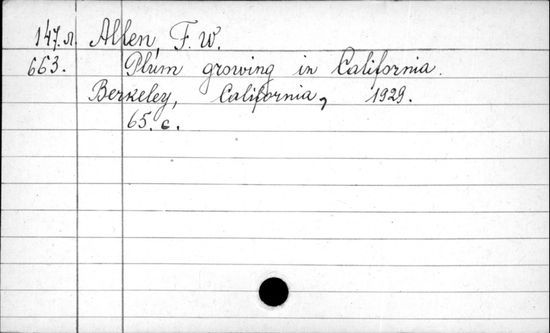 147.л. Allen, F. W.
663. Plum growing in California.
Berkeley, California, 1929.
65. c.